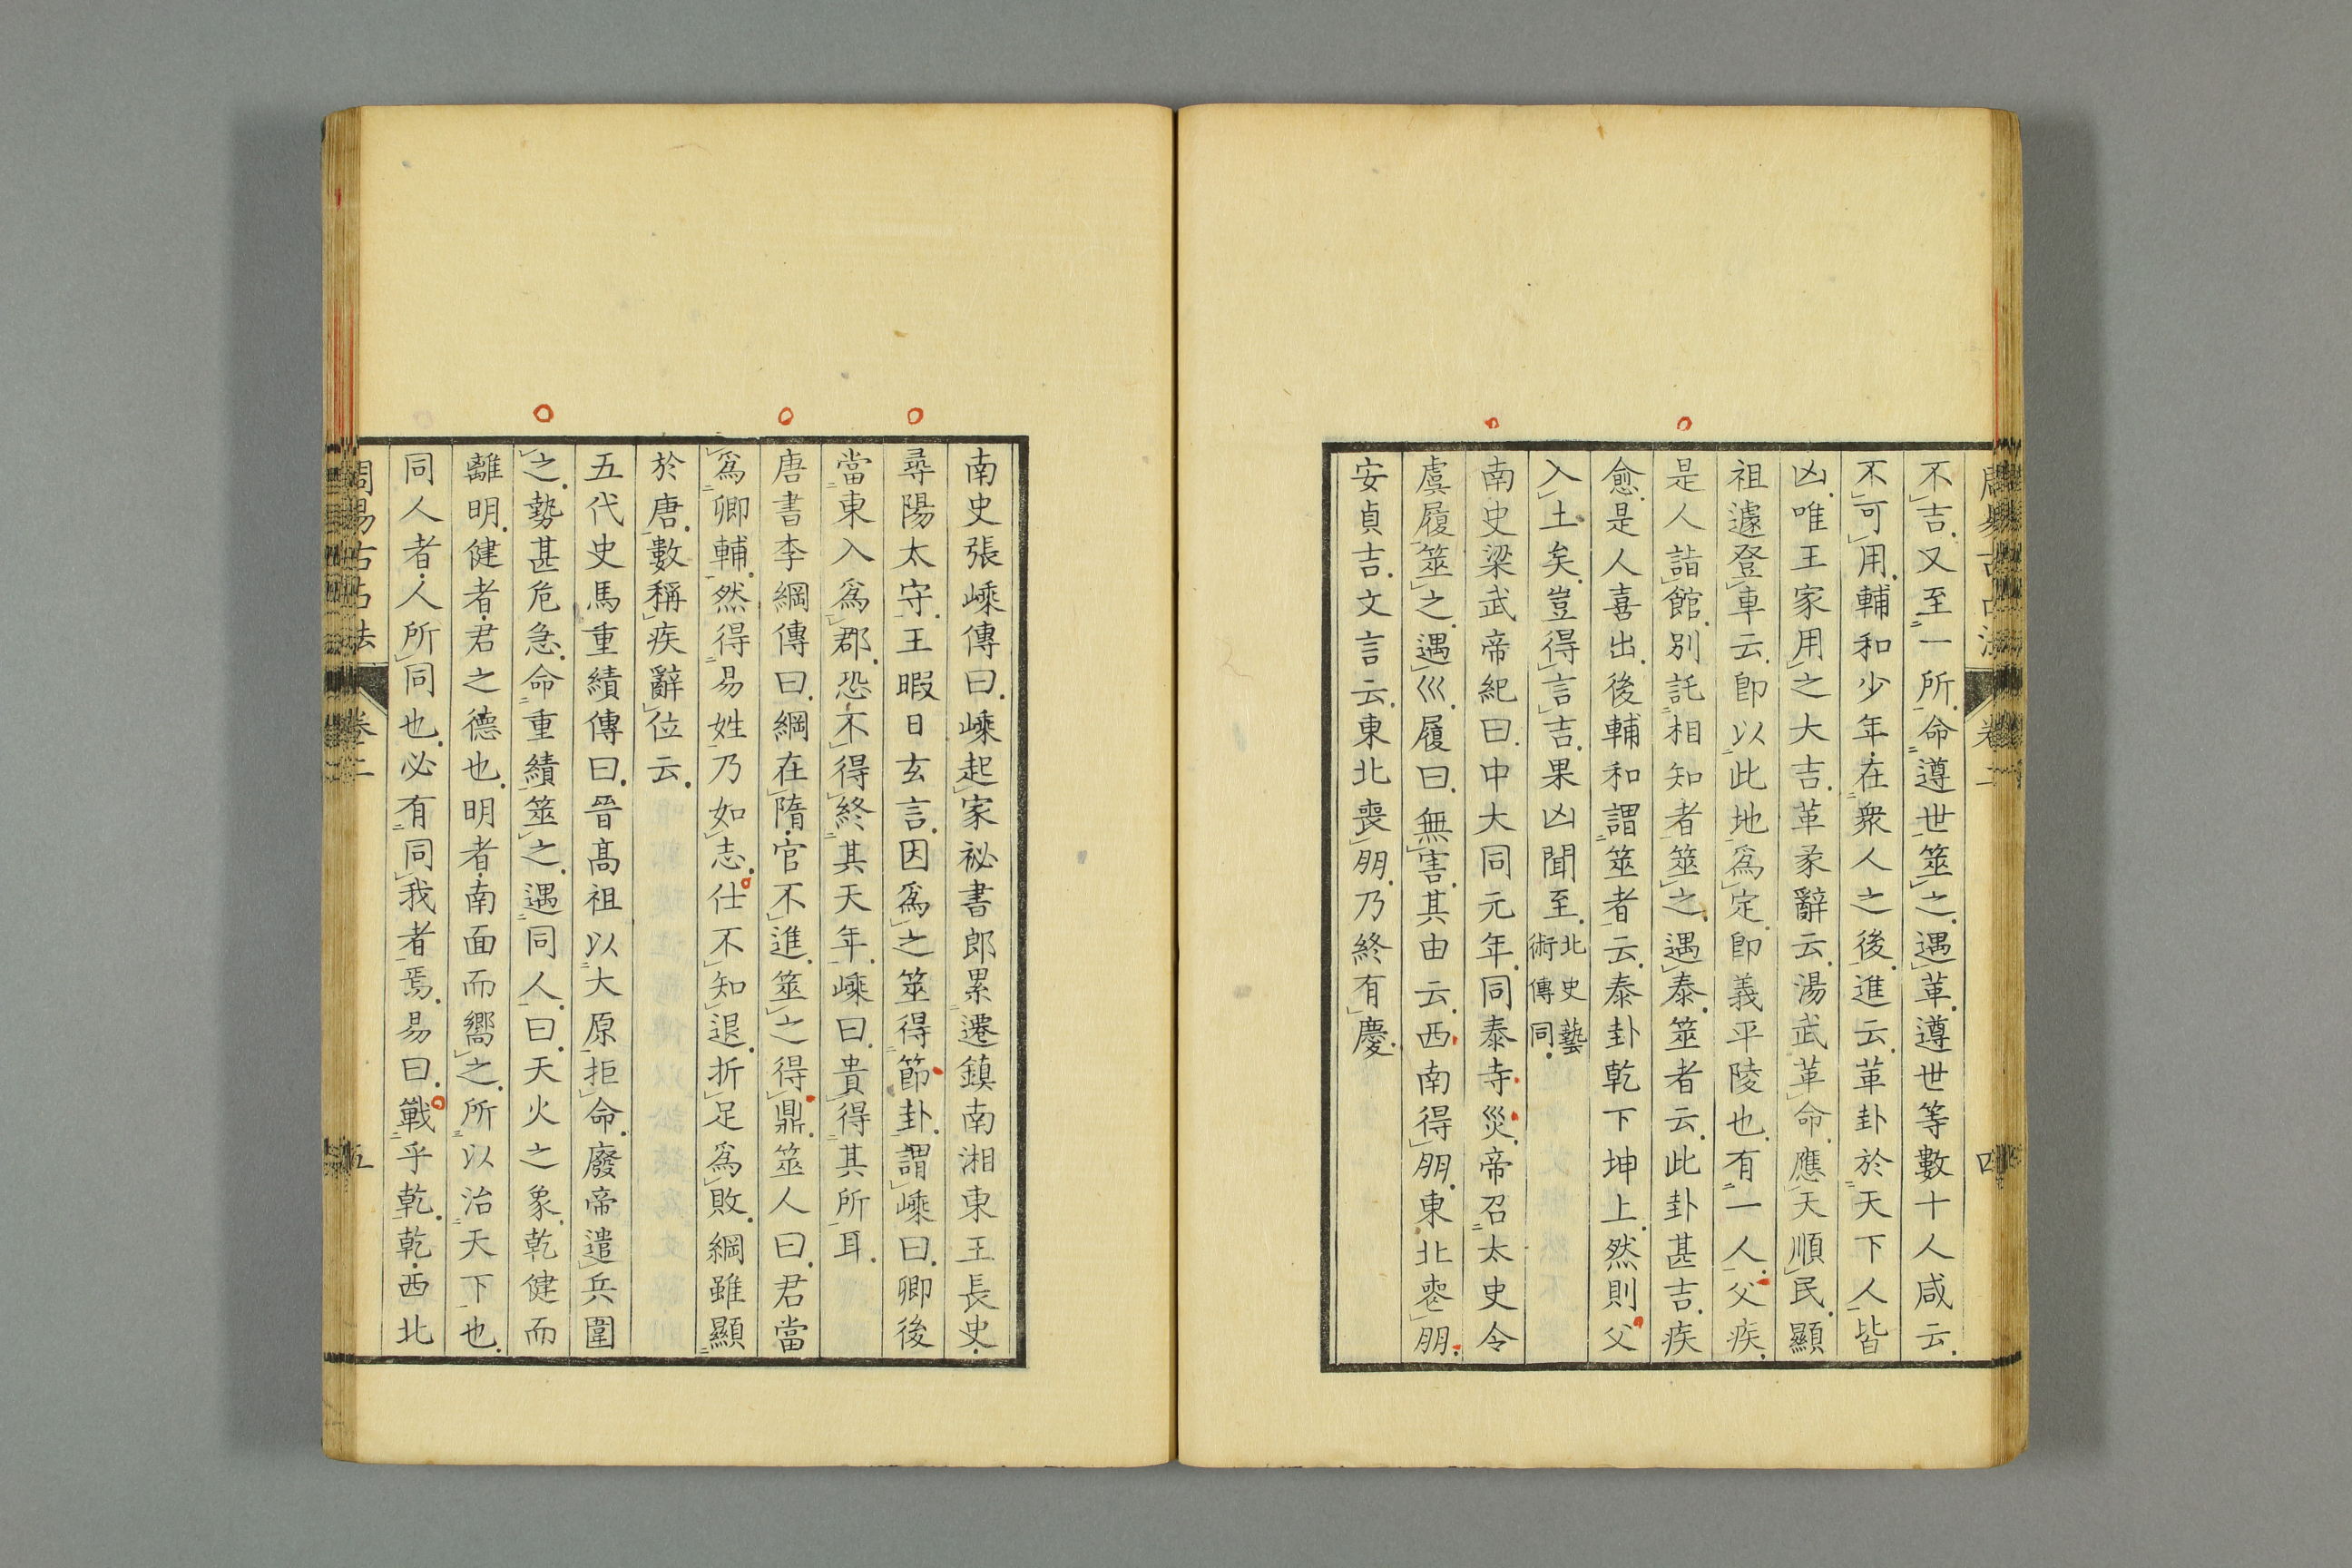 周易古占法 卷二 四
不吉又至一所命遵世筮之遇革遵世等數十人咸云
不可用輔和少年在衆人之後進云革卦於天下人皆
凶唯王家用之大吉革彖辭云湯武革命應天順民顯
祖遽登車云即以此地爲定即義平陵也有一人父疾
是人詣館別託相知者筮之遇泰筮者云此卦甚吉疾
愈是人喜出後輔和謂筮者云泰卦乾下坤上然則父
入土矣豈得言吉果凶聞至北史藝術傳同
南史梁武帝紀曰中大同元年同泰寺災帝召太史令
虞履筮之遇巛履曰無害其由云西南得朋東北喪朋
安貞吉文言云東北喪朋乃終有慶
南史張嵊傳曰嵊起家祕書郎累遷鎮南湘東王長史
尋陽太守王暇日玄言因爲之筮得節卦謂嵊曰卿後
當東入爲郡恐不得終其天年嵊曰貴得其所耳
唐書李綱傳曰綱在隋官不進筮之得鼎筮人曰君當
爲卿輔然得易姓乃如志仕不知退折足爲敗綱雖顯
於唐數稱疾辭位云
五代史馬重績傳曰晉高祖以大原拒命廢帝遣兵圍
之勢甚危急命重績筮之遇同人曰天火之象乾健而
離明健者君之德也明者南面而嚮之所以治天下也
同人者人所同也必有同我者焉易曰戰乎乾乾西北
周易古占法 卷二 五